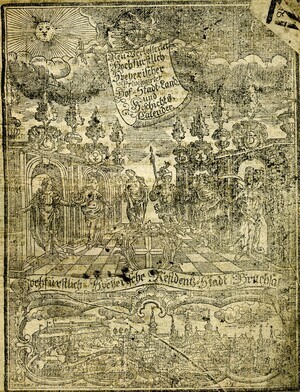 Neu-Verbesserter
Hochfürstlich
Speyerischer
Hof- Stadt Land
und
Geschichts
Calender
Hochfürstlich Speyerische Residentz-Stadt Bruchsal